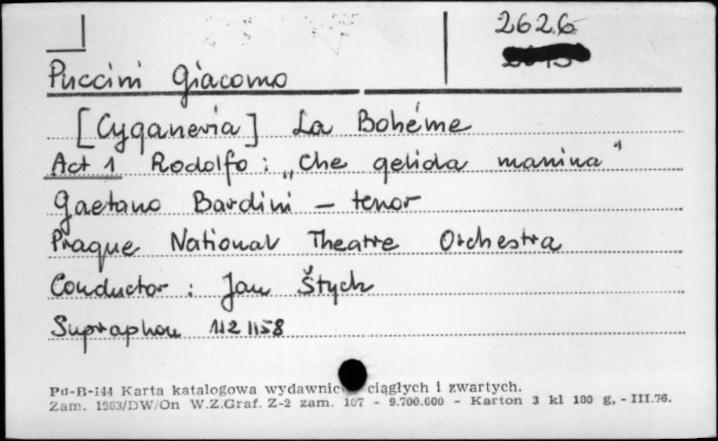 2626
Puccini Giacomo
[Cyganeria] La Bohéme
Act 1 Rodolfo: „Che gelida manina"
Gaetano Bardini – tenor
Prague National Theatre Orchestra
Conductor: Jan Štych
Supraphon 112 1158
Pu-B-144 Karta katalogowa wydawnic ciągłych i zwartych.
Zam. 1963/DW/On W.Z.Graf. Z-2 zam. 107 - 9.700.000 - Karton 3 kl 180 g, - III.76.